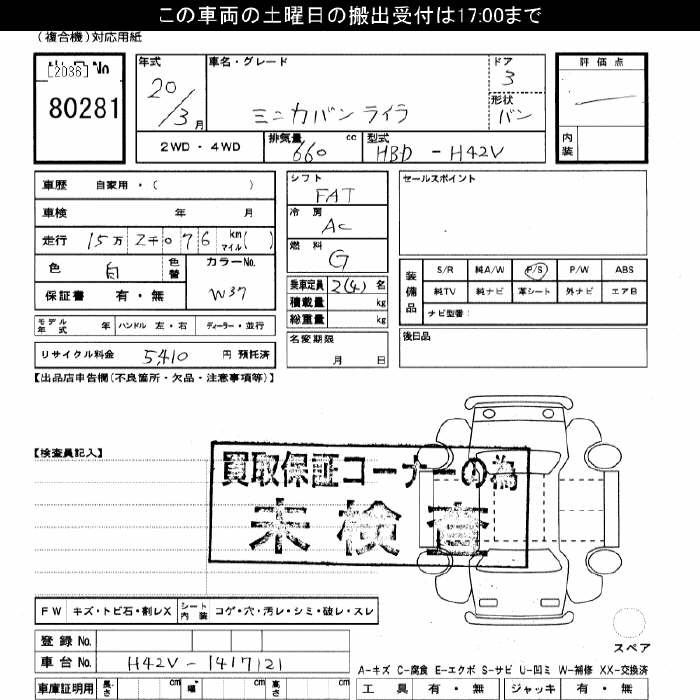 この車両の土曜日の搬出受付は17:00まで
(複合機)対応用紙
[2036] No
80281
年式
20/3月
車名・グレード
ミニカバン ライラ
ドア
3
形状
バン
評価点
内装
2WD・4WD
排気量 660 cc
型式 HBD - H42V
車歴 自家用・( )
車検 年 月
走行 15万 2千076 km マイル( )
色 白 色替
カラーNo.
W37
保証書 有・無
シフト
FAT
冷房
AC
燃料
G
乗車定員 2(4) 名
積載量 kg
総重量 kg
名変期限
月 日
セールスポイント
装備品
S/R 純A/W P/S P/W ABS
純TV 純ナビ 革シート 外ナビ エアB
ナビ型番:
後日品
モデル年式 年 ハンドル 左・右 ディーラー・並行
リサイクル料金 5,410 円 預託済
【出品店申告欄(不良箇所・欠品・注意事項等)】
【検査員記入】
買取保証コーナーの為
未検査
FW キズ・トビ石・割レX シート内装 コゲ・穴・汚レ・シミ・破レ・スレ
スペア
登録No.
車台No. H42V-1417121
A-キズ C-腐食 E-エクボ S-サビ U-凹ミ W-補修 XX-交換済
車庫証明用 長さ cm 幅 cm 高さ cm
工具 有・無 ジャッキ 有・無